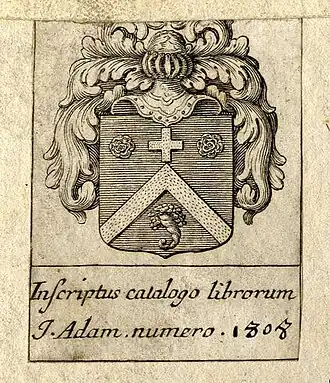 Inscriptus catalogo librorum
J. Adam. numero. 1808